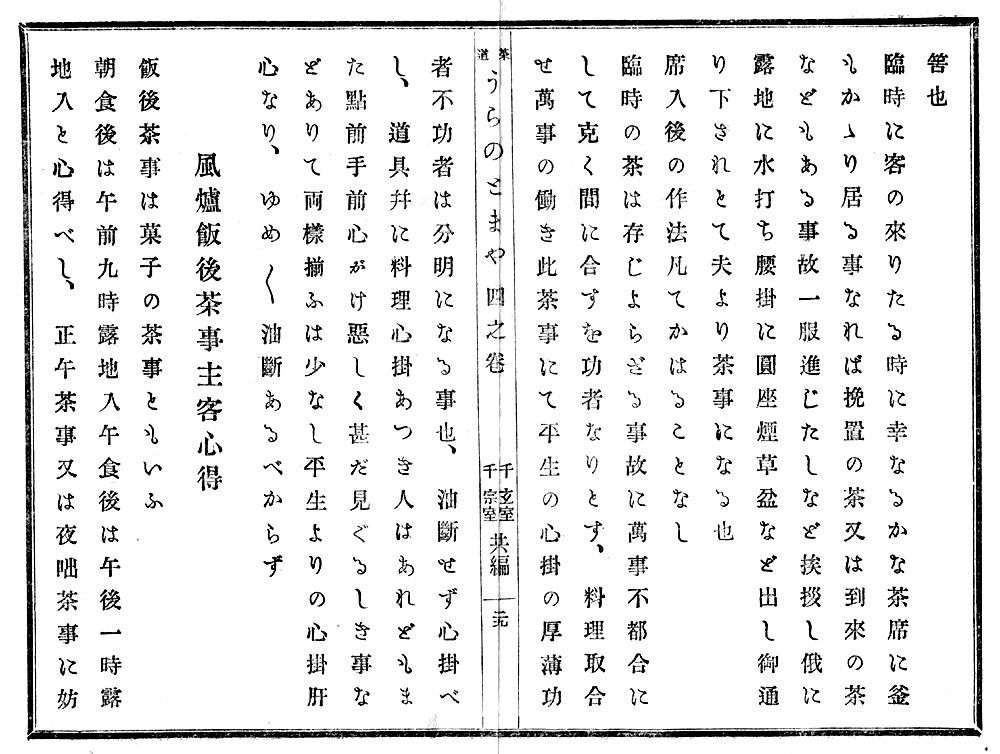 筈也
臨時に客の來りたる時に幸なるかな茶席に釜
もかゝり居る事なれば挽置の茶又は到來の茶
などもある事故一服進じたしなど挨拶し俄に
露地に水打ち腰掛に圓座煙草盆など出し御通
り下されとて夫より茶事になる也
席入後の作法凡てかはることなし
臨時の茶は存じよらざる事故に萬事不都合に
して克く間に合すを功者なりとす、料理取合
せ萬事の働き此茶事にて平生の心掛の厚薄功
茶道うらのとまや 四之卷 千玄室 千宗室 共編
者不功者は分明になる事也、油斷せず心掛べ
し、道具并に料理心掛あつき人はあれどもま
た點前手前心がけ惡しく甚だ見ぐるしき事な
どありて両樣揃ふは少なし平生よりの心掛肝
心なり、ゆめ〱油斷あるべからず
風爐飯後茶事主客心得
飯後茶事は菓子の茶事ともいふ
朝食後は午前九時露地入午食後は午後一時露
地入と心得べし、正午茶事又は夜咄茶事に妨